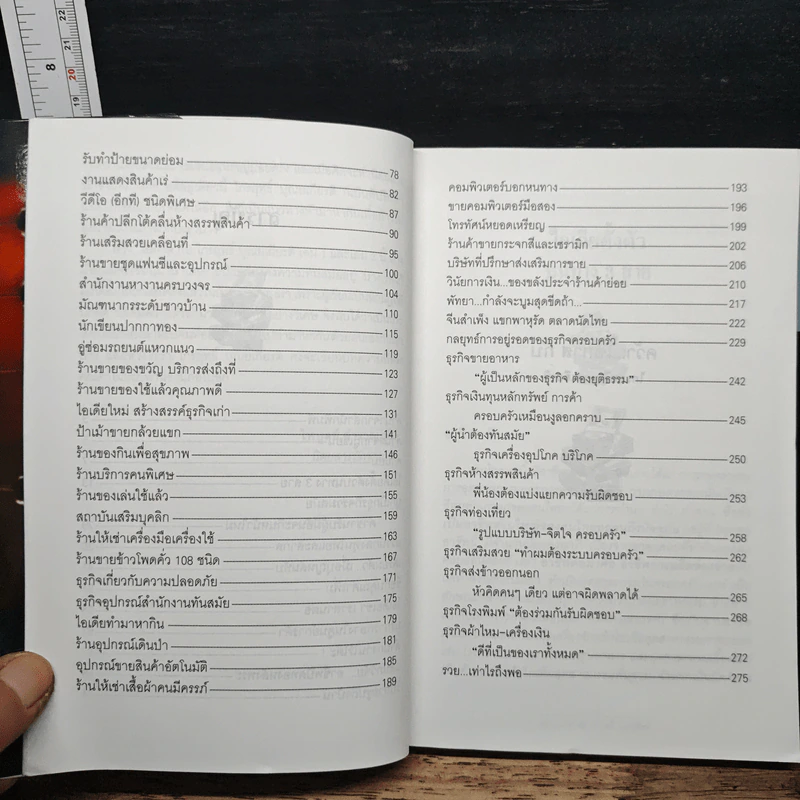 8
22
21
20
19
รับทำป้ายขนาดย่อม 78
งานแสดงสินค้าเร่ 82
วีดีโอ (อีกที) ชนิดพิเศษ 87
ร้านค้าปลีกโต้คลื่นห้างสรรพสินค้า 90
ร้านเสริมสวยเคลื่อนที่ 95
ร้านขายชุดแฟนซีและอุปกรณ์ 100
สำนักงานหางานครบวงจร 104
มัณฑนากรระดับชาวบ้าน 110
นักเขียนปากกาทอง 115
อู่ซ่อมรถยนต์แหวกแนว 119
ร้านขายของขวัญ บริการส่งถึงที่ 123
ร้านขายของใช้แล้วคุณภาพดี 127
ไอเดียใหม่ สร้างสรรค์ธุรกิจเก่า 131
ป้าเม้าขายกล้วยแขก 141
ร้านของกินเพื่อสุขภาพ 146
ร้านบริการคนพิเศษ 151
ร้านของเล่นใช้แล้ว 155
สถาบันเสริมบุคลิก 159
ร้านให้เช่าเครื่องมือเครื่องใช้ 163
ร้านขายข้าวโพดคั่ว 108 ชนิด 167
ธุรกิจเกี่ยวกับความปลอดภัย 171
ธุรกิจอุปกรณ์สำนักงานทันสมัย 175
ไอเดียทำมาหากิน 179
ร้านอุปกรณ์เดินป่า 181
อุปกรณ์ขายสินค้าอัตโนมัติ 185
ร้านให้เช่าเสื้อผ้าคนมีครรภ์ 189
คอมพิวเตอร์บอกหนทาง 193
ขายคอมพิวเตอร์มือสอง 196
โทรทัศน์หยอดเหรียญ 199
ร้านค้าขายกระจกสีและเซรามิก 202
บริษัทที่ปรึกษาส่งเสริมการขาย 206
วินัยการเงิน...ของขลังประจำร้านค้าย่อย 210
พัทยา...กำลังจะบูมสุดขีดถ้า... 217
จีนสำเพ็ง แขกพาหุรัด ตลาดนัดไทย 222
กลยุทธ์การอยู่รอดของธุรกิจครอบครัว 229
ธุรกิจขายอาหาร
"ผู้เป็นหลักของธุรกิจ ต้องยุติธรรม" 242
ธุรกิจเงินทุนหลักทรัพย์ การค้า
ครอบครัวเหมือนงูลอกคราบ 245
"ผู้นำต้องทันสมัย"
ธุรกิจเครื่องอุปโภค บริโภค 250
ธุรกิจห้างสรรพสินค้า
พี่น้องต้องแบ่งแยกความรับผิดชอบ 253
ธุรกิจท่องเที่ยว
"รูปแบบบริษัท-จิตใจ ครอบครัว" 258
ธุรกิจเสริมสวย "ทำผมต้องระบบครอบครัว" 262
ธุรกิจส่งข้าวออกนอก
หัวคิดคนๆ เดียว แต่อาจผิดพลาดได้ 265
ธุรกิจโรงพิมพ์ "ต้องร่วมกันรับผิดชอบ" 268
ธุรกิจผ้าไหม-เครื่องเงิน
"ดีที่เป็นของเราทั้งหมด" 272
รวย...เท่าไรถึงพอ 275